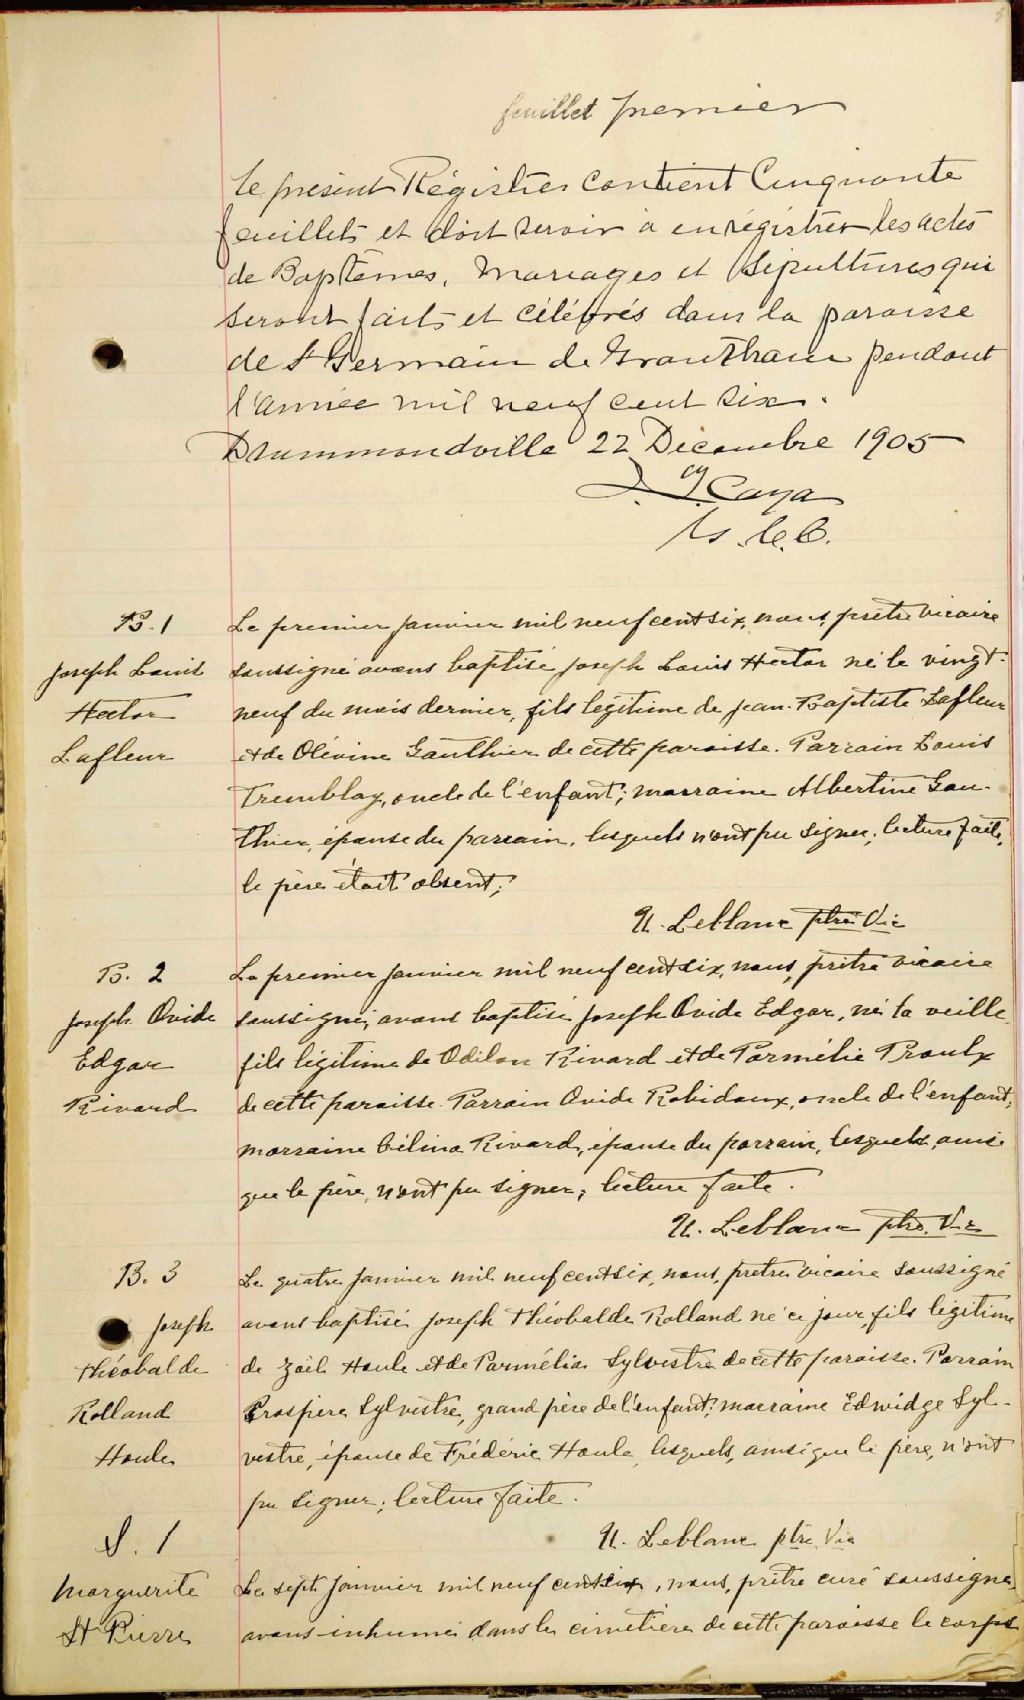 feuillet premier
Le présent Régistre contient Cinquante
feuillets et doit servir à enrégistrer les actes
de Baptêmes, Mariages et Sépultures qui
seront faits et célébrés dans la paroisse
de St Germain de Grantham pendant
l'année mil neuf cent six.
Drummondville 22 Décembre 1905
Caya
B.1
Joseph Louis
Hector
Lafleur
Le premier janvier mil neuf cent six, nous, prêtre vicaire
soussigné avons baptisé Joseph Louis Hector né le vingt-
neuf du mois dernier, fils légitime de Jean-Baptiste Lafleur
et de Olévine Gauthier de cette paroisse. Parrain Louis
Tremblay, oncle de l'enfant; marraine Albertine Gau-
thier, épouse du parrain, lesquels n'ont pu signer; lecture faite,
le père était absent;
U. Leblanc ptre Vic
B. 2
Joseph Ovide
Edgar
Rivard
Le premier janvier mil neuf cent six, nous, prêtre vicaire
soussigné, avons baptisé Joseph Ovide Edgar, né la veille
fils légitime de Odilon Rivard et de Parmélie Proulx
de cette paroisse. Parrain Ovide Robidoux, oncle de l'enfant;
marraine Célina Rivard, épouse du parrain, lesquels, ainsi
que le père, n'ont pu signer; lecture faite.
U. Leblanc ptre. Vic
B. 3
Joseph
Théobalde
Rolland
Houle
Le quatre janvier mil neuf cent six, nous, prêtre vicaire soussigné
avons baptisé Joseph Théobalde Rolland né ce jour, fils légitime
de Zoël Houle et de Parmélia Sylvestre de cette paroisse. Parrain
Prospère Sylvestre, grand père de l'enfant; marraine Edwidge Syl-
vestre, épouse de Frédéric Houle, lesquels, ainsi que le père, n'ont
pu signer; lecture faite.
U. Leblanc ptre Vic
S. 1
Marguerite
St Pierre
Le sept janvier mil neuf cent six, nous, prêtre curé soussigné
avons inhumé dans le cimetière de cette paroisse le corps